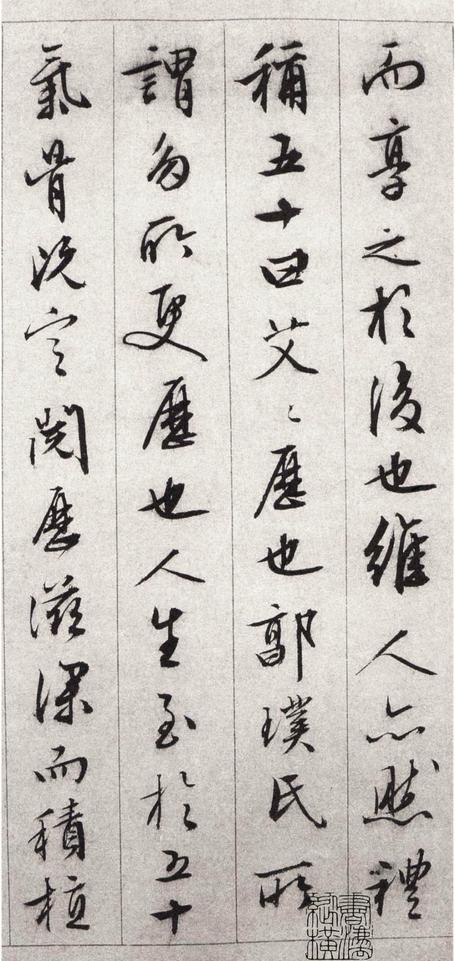 而享之於後也維人亦然禮
稱五十曰艾〻歷也郭璞氏所
謂多所更歷也人生至於五十
氣骨洗定閱歷滋深而積植